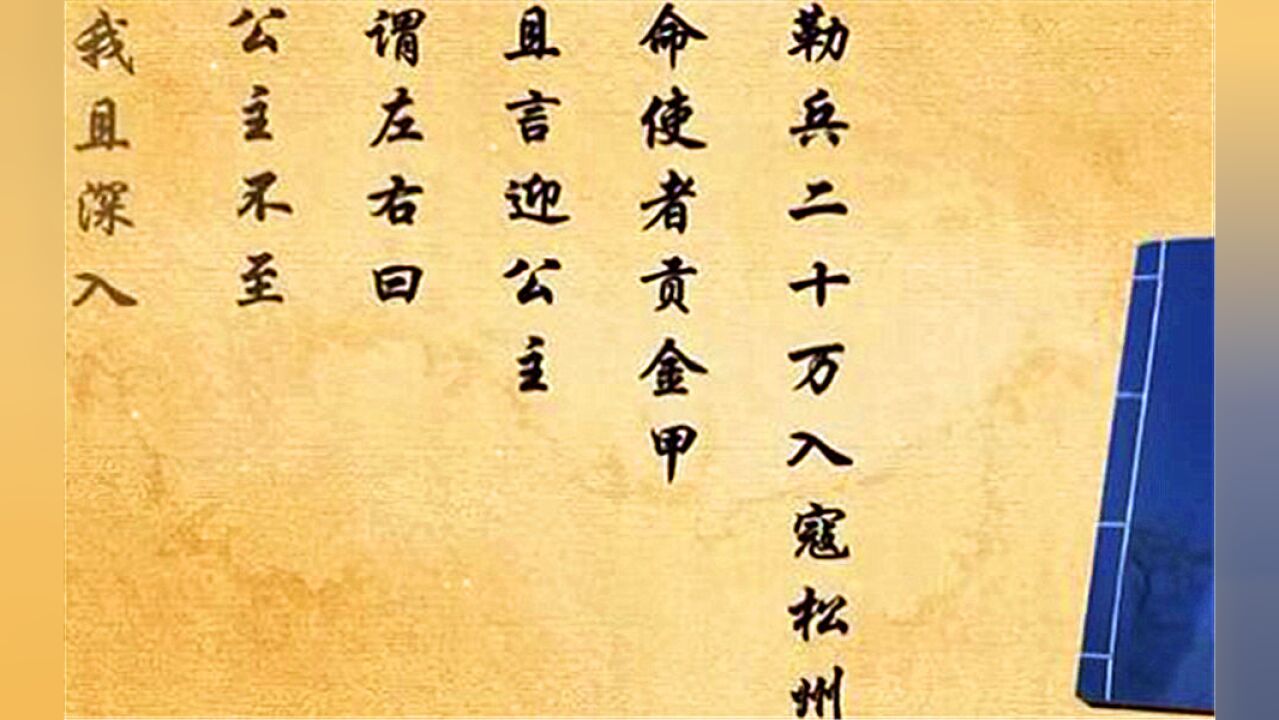 勒兵二十万入寇松州
命使者贡金甲
且言迎公主
谓左右曰
公主不至
我且深入